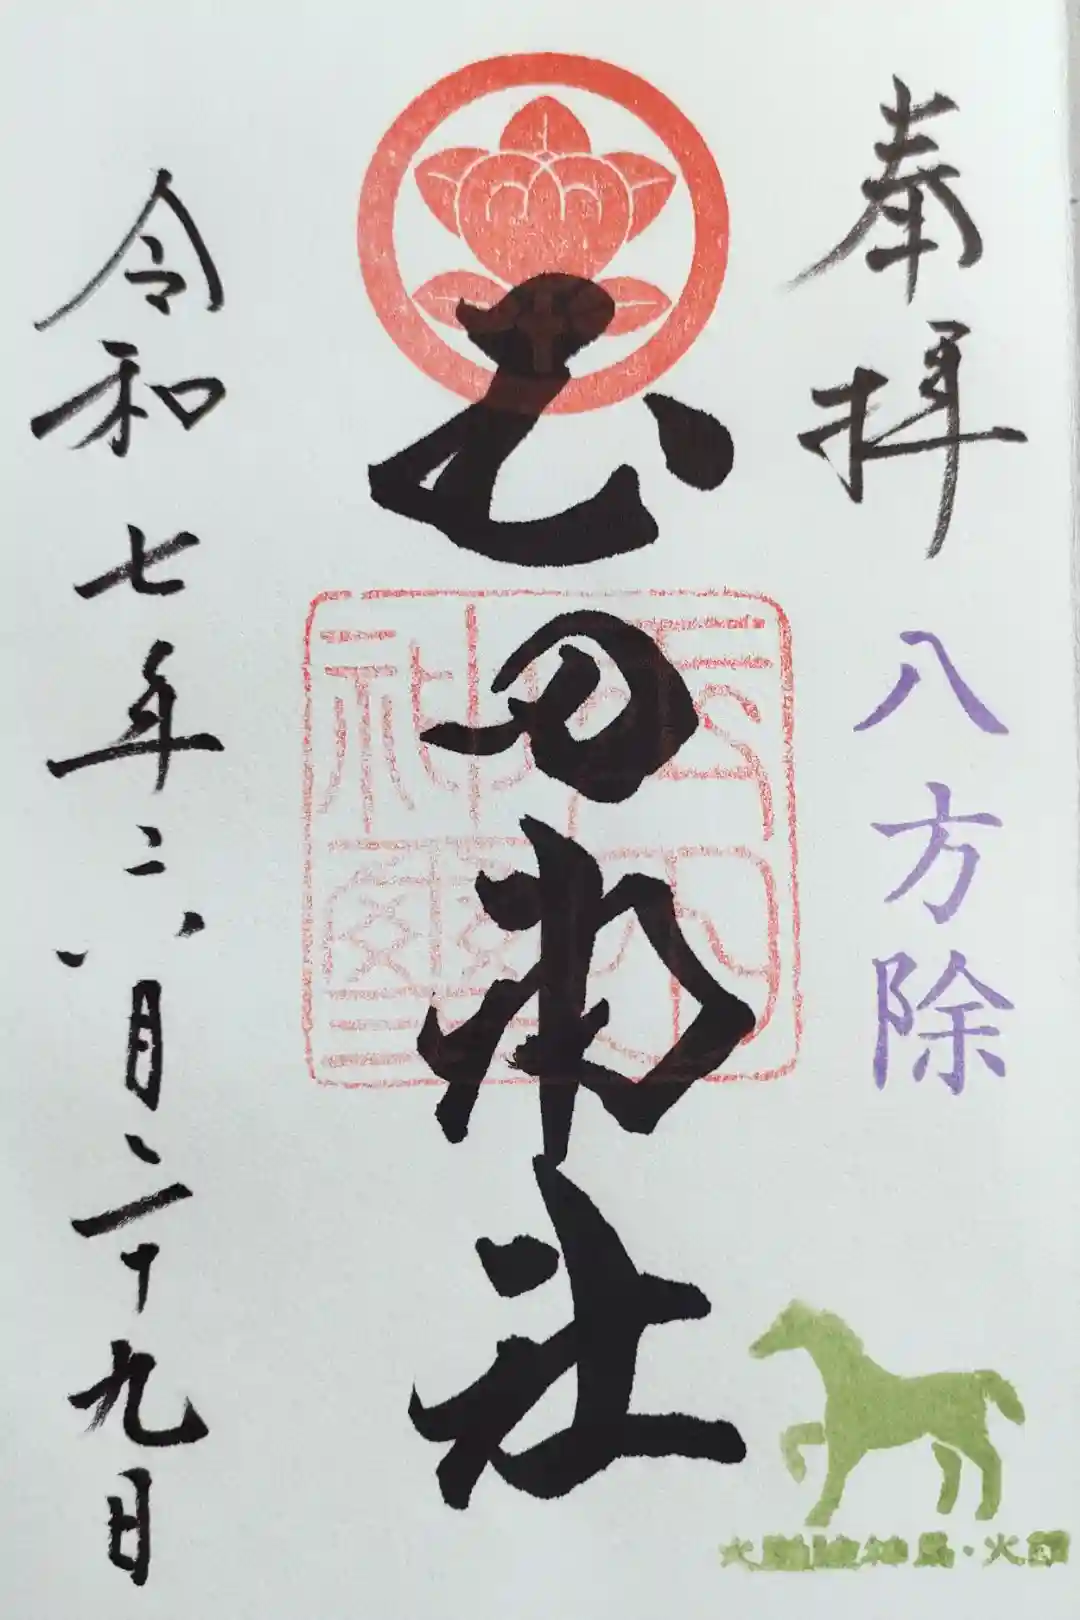 奉拝
八方除
玉田神社
令和七年六月二十九日